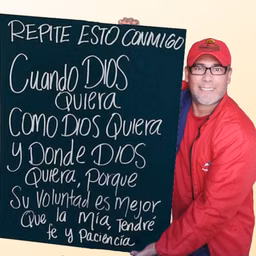 REPITE ESTO CONMIGO
CUANDO DIOS
QUIERA
COMO DIOS QUIERA
Y DONDE DIOS
QUIERA, PORQUE
SU VOLUNTAD ES MEJOR
QUE LA MIA, TENDRÉ
FE Y PACIENCIA